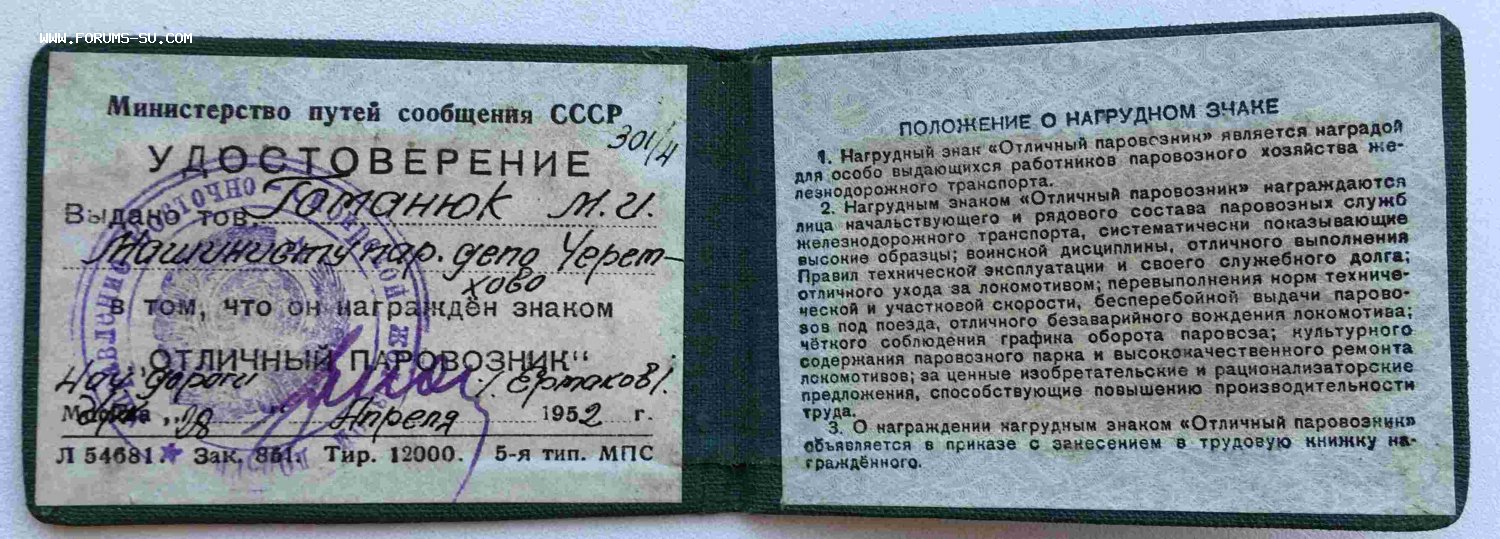 www.forums-su.com
Министерство путей сообщения СССР
301/4
УДОСТОВЕРЕНИЕ
Выдано тов. Готанюк М.И.
Машинисту пар. депо Черем-
хово
в том, что он награждён знаком
„ОТЛИЧНЫЙ ПАРОВОЗНИК“
Нач. дороги /Ермаков/.
Москва „28 Апреля 1952 г.
Л 54681. Зак. 851. Тир. 12000. 5-я тип. МПС
ПОЛОЖЕНИЕ О НАГРУДНОМ ЗНАКЕ
1. Нагрудный знак «Отличный паровозник» является наградой
для особо выдающихся работников паровозного хозяйства же-
лезнодорожного транспорта.
2. Нагрудным знаком «Отличный паровозник» награждаются
лица начальствующего и рядового состава паровозных служб
железнодорожного транспорта, систематически показывающие
высокие образцы; воинской дисциплины, отличного выполнения
Правил технической эксплуатации и своего служебного долга;
отличного ухода за локомотивом; перевыполнения норм техниче-
ской и участковой скорости, бесперебойной выдачи парово-
зов под поезда, отличного безаварийного вождения локомотива;
чёткого соблюдения графика оборота паровоза; культурного
содержания паровозного парка и высококачественного ремонта
локомотивов; за ценные изобретательские и рационализаторские
предложения, способствующие повышению производительности
труда.
3. О награждении нагрудным знаком «Отличный паровозник»
объявляется в приказе с занесением в трудовую книжку на-
граждённого.